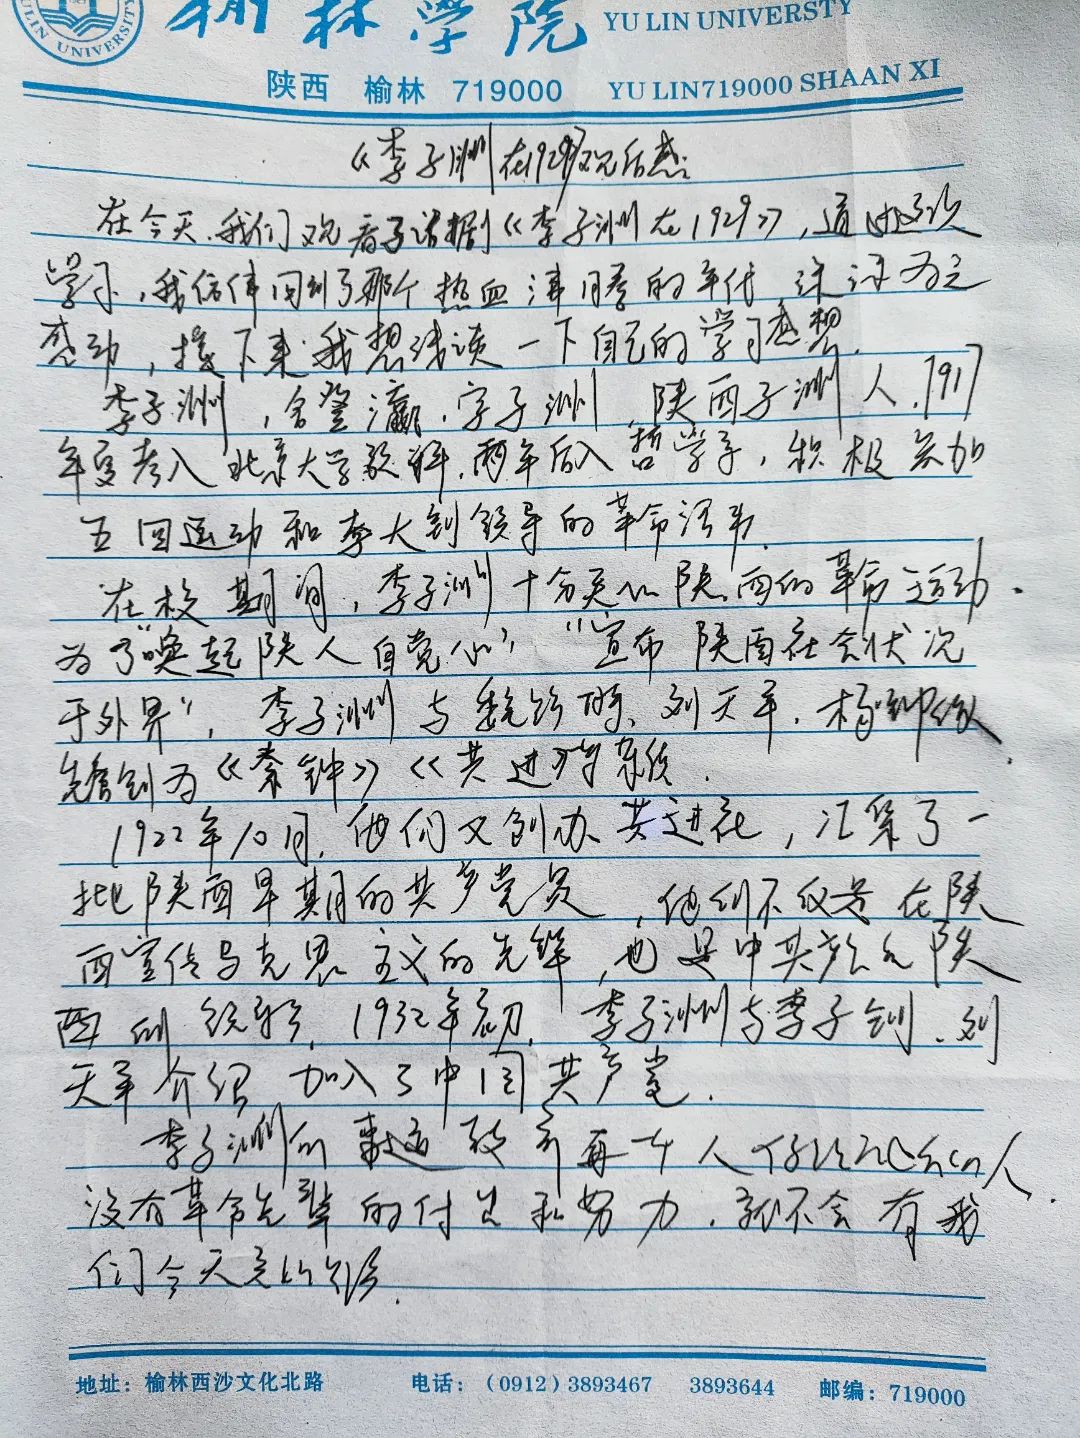 YULIN UNIVERSITY
榆林学院 YU LIN UNIVERSTY
陕西 榆林 719000 YU LIN719000 SHAAN XI
《李子洲在1929》观后感
在今天,我们观看了话剧《李子洲在1929》,通过这次
学习,我仿佛回到了那个热血沸腾的年代 深深为之
感动,接下来我想浅谈一下自己的学习感想.
李子洲,名登瀛.字子洲,陕西子洲人.1917
年夏考入北京大学预科.两年后入哲学系,积极参加
五四运动和李大钊领导的革命活动.
在校期间,李子洲十分关心陕西的革命运动.
为了"唤起陕人自觉心" "宣布陕西社会状况
于外界",李子洲与魏野畴、刘天章.杨钟健
先后创为《秦钟》《共进》等杂志.
1922年10月,他们又创办共进社,汇集了一
批陕西早期的共产党员,他们不仅是在陕
西宣传马克思主义的先锋,也是中共 陕
西的 . 1932年初,李子洲与李子钊、刘
天章介绍 加入了中国共产党.
李子洲的 人
没有革命先辈的付出和努力.就不会有我
们今天
地址:榆林西沙文化北路 电话:(0912)3893467 3893644 邮编:719000